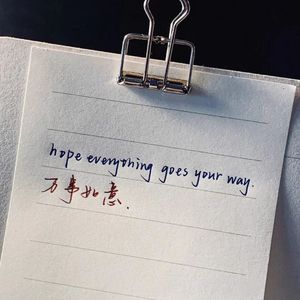 hope everything goes your way.
万事如意.